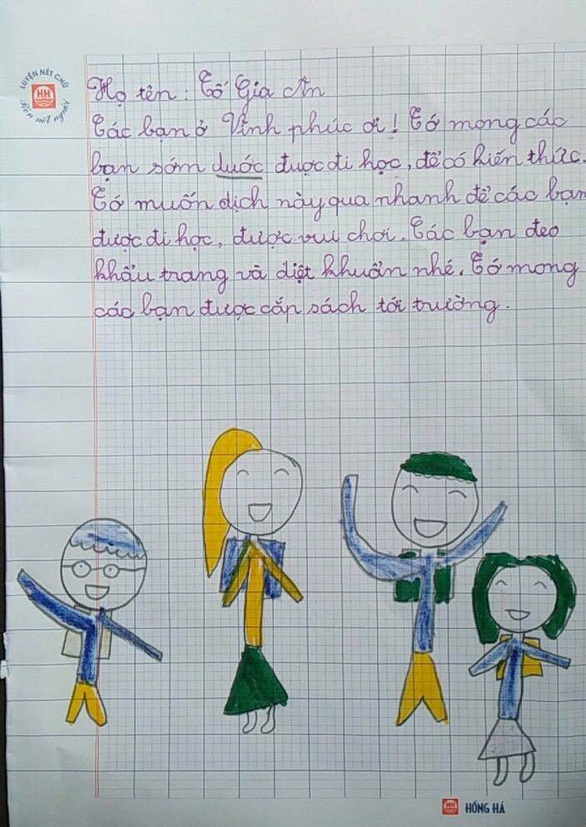 LUYỆN NÉT CHỮ
HH
Rèn nết người
Họ tên : Tố Gia An
Các bạn ở Vĩnh phúc ơi! Tớ mong các
bạn sớm dước được đi học, để có kiến thức.
Tớ muốn dịch này qua nhanh để các bạn
được đi học, được vui chơi. Các bạn đeo
khẩu trang và diệt khuẩn nhé. Tớ mong
các bạn được cắp sách tới trường.
HH HỒNG HÀ